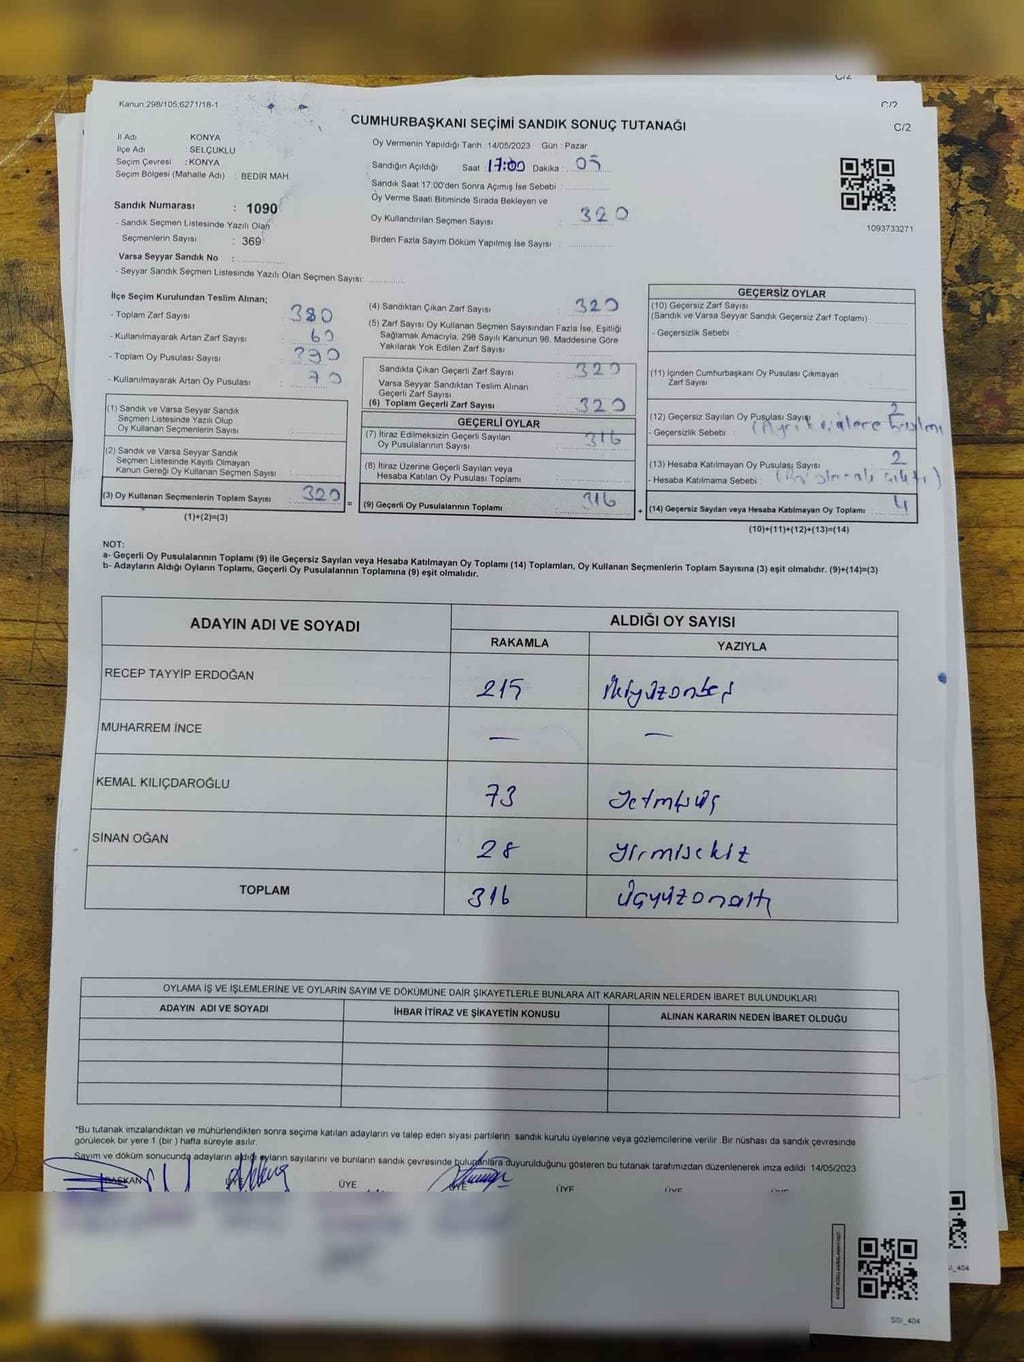 C/2
C/2
C/2
Kanun:298/105,6271/18-1
CUMHURBAŞKANI SEÇİMİ SANDIK SONUÇ TUTANAĞI
İl Adı KONYA
İlçe Adı : SELÇUKLU
Seçim Çevresi : KONYA
Seçim Bölgesi (Mahalle Adı) : BEDİR MAH.
Sandık Numarası : 1090
- Sandık Seçmen Listesinde Yazılı Olan
Seçmenlerin Sayısı : 369
Varsa Seyyar Sandık No :
- Seyyar Sandık Seçmen Listesinde Yazılı Olan Seçmen Sayısı:
Oy Vermenin Yapıldığı Tarih : 14/05/2023 Gün : Pazar
Sandığın Açıldığı Saat 17:00 Dakika : 05
Sandık Saat 17:00'den Sonra Açımış İse Sebebi :
Oy Verme Saati Bitiminde Sırada Bekleyen ve
Oy Kullandırılan Seçmen Sayısı 320
Birden Fazla Sayım Döküm Yapılmış İse Sayısı :
1093733271
İlçe Seçim Kurulundan Teslim Alınan;
- Toplam Zarf Sayısı : 380
- Kullanılmayarak Artan Zarf Sayısı : 60
- Toplam Oy Pusulası Sayısı : 390
- Kullanılmayarak Artan Oy Pusulası : 70
(1) Sandık ve Varsa Seyyar Sandık
Seçmen Listesinde Yazılı Olup
Oy Kullanan Seçmenlerin Sayısı
(2) Sandık ve Varsa Seyyar Sandık
Seçmen Listesinde Kayıtlı Olmayan
Kanun Gereği Oy Kullanan Seçmen Sayısı
(3) Oy Kullanan Seçmenlerin Toplam Sayısı 320
(1)+(2)=(3)
(4) Sandıktan Çıkan Zarf Sayısı : 320
(5) Zarf Sayısı Oy Kullanan Seçmen Sayısından Fazla İse, Eşitliği
Sağlamak Amacıyla, 298 Sayılı Kanunun 98. Maddesine Göre
Yakılarak Yok Edilen Zarf Sayısı
Sandıkta Çıkan Geçerli Zarf Sayısı : 320
Varsa Seyyar Sandıktan Teslim Alınan
Geçerli Zarf Sayısı
(6) Toplam Geçerli Zarf Sayısı : 320
GEÇERLİ OYLAR
(7) İtiraz Edilmeksizin Geçerli Sayılan
Oy Pusulalarının Sayısı 316
(8) İtiraz Üzerine Geçerli Sayılan veya
Hesaba Katılan Oy Pusulası Toplamı
(9) Geçerli Oy Pusulalarının Toplamı 316
GEÇERSİZ OYLAR
(10) Geçersiz Zarf Sayısı
(Sandık ve Varsa Seyyar Sandık Geçersiz Zarf Toplamı)
- Geçersizlik Sebebi :
(11) İçinden Cumhurbaşkanı Oy Pusulası Çıkmayan
Zarf Sayısı
(12) Geçersiz Sayılan Oy Pusulası Sayısı 2
- Geçersizlik Sebebi
(13) Hesaba Katılmayan Oy Pusulası Sayısı 2
- Hesaba Katılmama Sebebi :
(14) Geçersiz Sayılan veya Hesaba Katılmayan Oy Toplamı 4
(10)+(11)+(12)+(13)=(14)
NOT:
a- Geçerli Oy Pusulalarının Toplamı (9) ile Geçersiz Sayılan veya Hesaba Katılmayan Oy Toplamı (14) Toplamları, Oy Kullanan Seçmenlerin Toplam Sayısına (3) eşit olmalıdır. (9)+(14)=(3)
b- Adayların Aldığı Oyların Toplamı, Geçerli Oy Pusulalarının Toplamına (9) eşit olmalıdır.
ADAYIN ADI VE SOYADI ALDIĞI OY SAYISI
RAKAMLA YAZIYLA
RECEP TAYYİP ERDOĞAN 215 ikiyüzonbeş
MUHARREM İNCE — —
KEMAL KILIÇDAROĞLU 73 yetmişüç
SİNAN OĞAN 28 yirmisekiz
TOPLAM 316 üçyüzonaltı
OYLAMA İŞ VE İŞLEMLERİNE VE OYLARIN SAYIM VE DÖKÜMÜNE DAİR ŞİKAYETLERLE BUNLARA AİT KARARLARIN NELERDEN İBARET BULUNDUKLARI
ADAYIN ADI VE SOYADI İHBAR İTİRAZ VE ŞİKAYETİN KONUSU ALINAN KARARIN NEDEN İBARET OLDUĞU
*Bu tutanak imzalandıktan ve mühürlendikten sonra seçime katılan adayların ve talep eden siyasi partilerin sandık kurulu üyelerine veya gözlemcilerine verilir. Bir nüshası da sandık çevresinde
görülecek bir yere 1 (bir ) hafta süreyle asılır.
Sayım ve döküm sonucunda adayların aldığı oyların sayılarını ve bunların sandık çevresinde bulunanlara duyurulduğunu gösteren bu tutanak tarafımızdan düzenlenerek imza edildi. 14/05/2023
BAŞKAN ÜYE ÜYE ÜYE ÜYE ÜYE
SSI_404